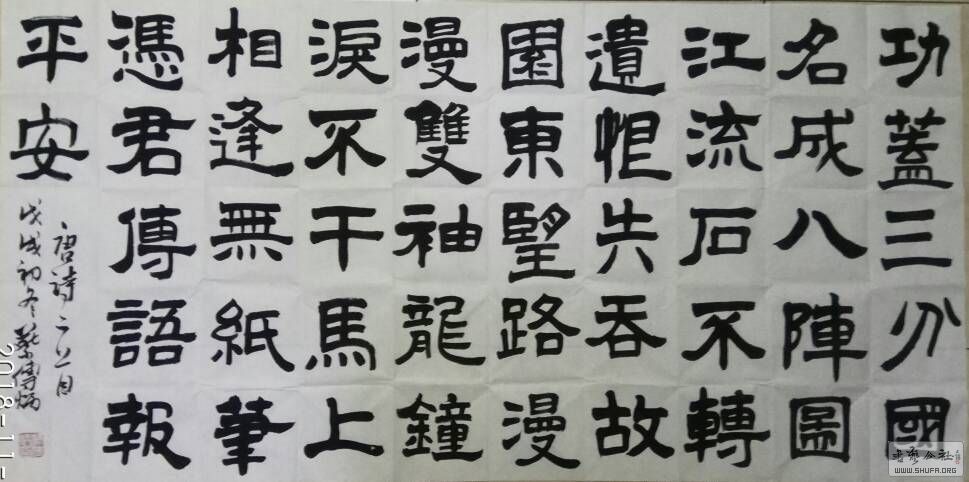 功蓋三分國
名成八陣圖
江流石不轉
遺恨失吞故
園東望路漫
漫雙袖龍鐘
淚不干馬上
相逢無紙筆
憑君傳語報
平安
唐詩二首
戊戌初冬
2018-11-
公社
WWW.SHUFA.ORG